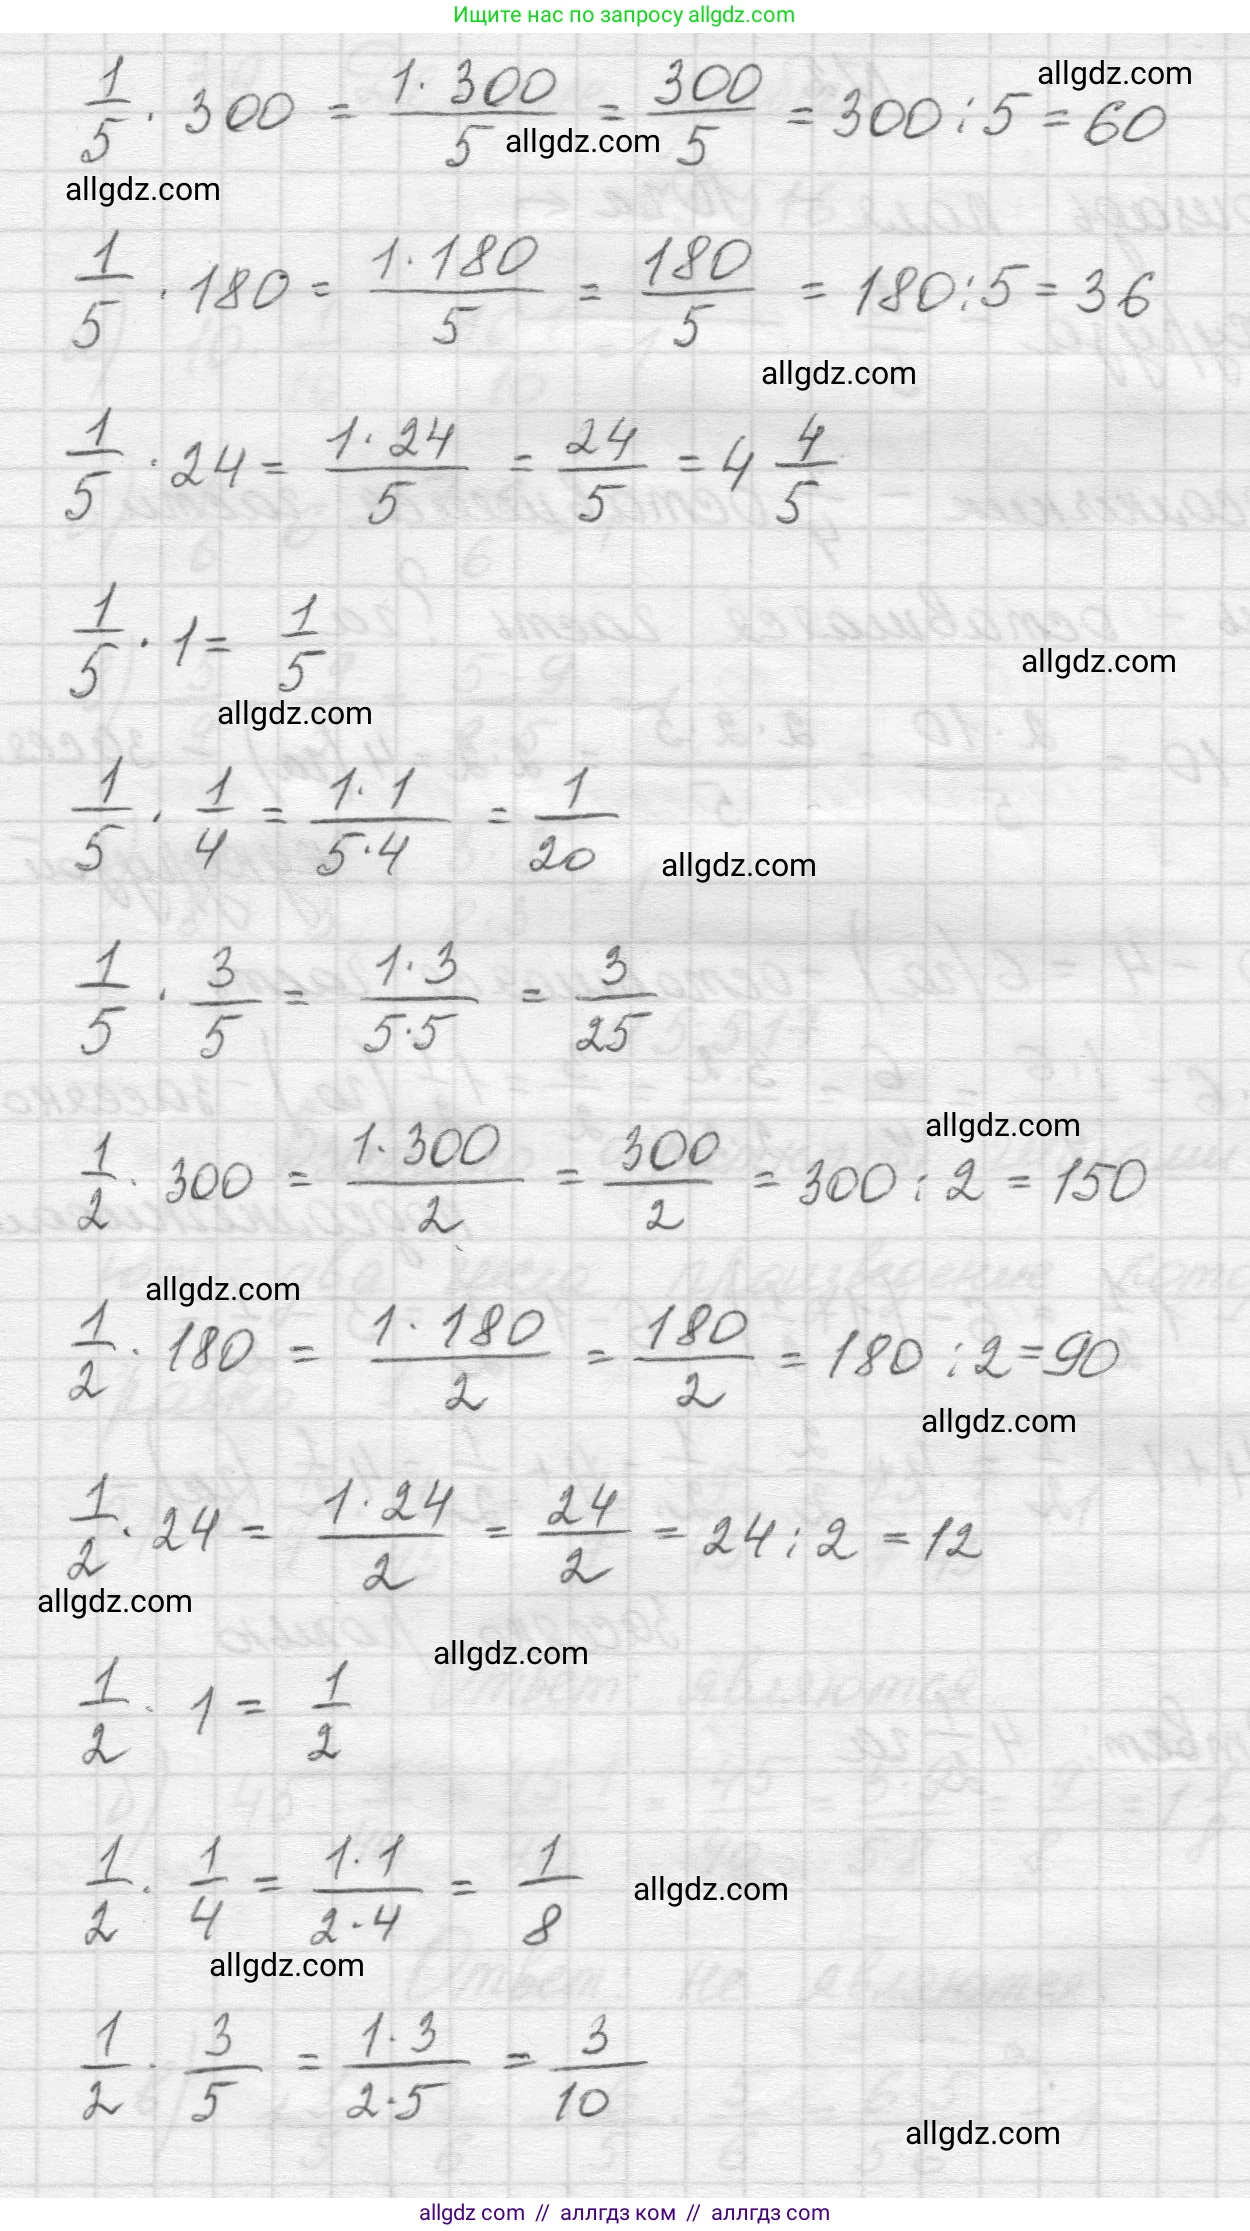 Ищите нас по запросу allgdz.com
1/5 · 300 = 1·300/5 = 300/5 = 300:5 = 60
allgdz.com
allgdz.com
allgdz.com
1/5 · 180 = 1·180/5 = 180/5 = 180:5 = 36
allgdz.com
1/5 · 24 = 1·24/5 = 24/5 = 4 4/5
1/5 · 1 = 1/5
allgdz.com
allgdz.com
1/5 · 1/4 = 1·1/5·4 = 1/20
allgdz.com
1/5 · 3/5 = 1·3/5·5 = 3/25
allgdz.com
1/2 · 300 = 1·300/2 = 300/2 = 300:2 = 150
allgdz.com
1/2 · 180 = 1·180/2 = 180/2 = 180:2 = 90
allgdz.com
1/2 · 24 = 1·24/2 = 24/2 = 24:2 = 12
allgdz.com
allgdz.com
1/2 · 1 = 1/2
1/2 · 1/4 = 1·1/2·4 = 1/8
allgdz.com
allgdz.com
1/2 · 3/5 = 1·3/2·5 = 3/10
allgdz.com
allgdz.com // аллгдз ком // аллгдз.com